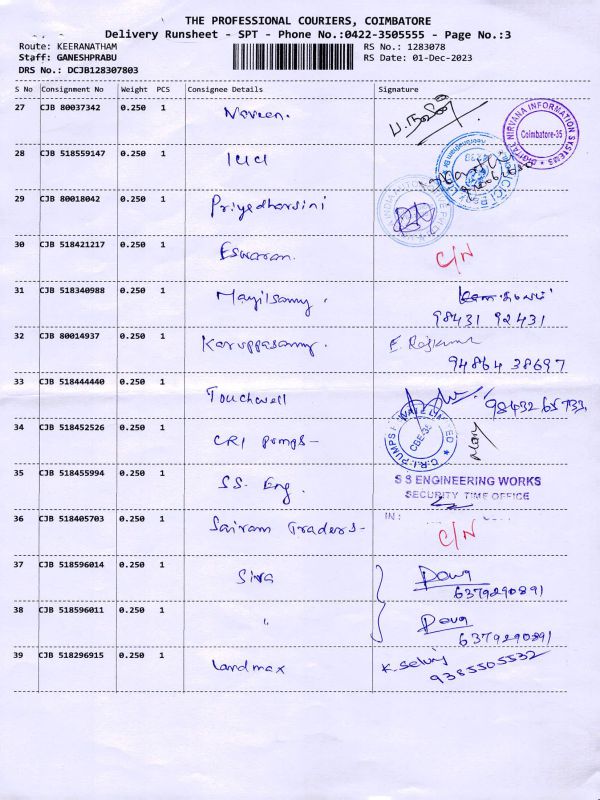 THE PROFESSIONAL COURIERS, COIMBATORE
Delivery Runsheet - SPT - Phone No.:0422-3505555 - Page No.:3
Route: KEERANATHAM RS No.: 1283078
Staff: GANESHPRABU RS Date: 01-Dec-2023
DRS No.: DCJB128307803
S No Consignment No Weight PCS Consignee Details Signature
27 CJB 80037342 0.250 1 Naveen.
DIGITAL NIRVANA INFORMATION SYSTEMS
Coimbatore-35
28 CJB 518559147 0.250 1 ICICI
29 CJB 80018042 0.250 1 Priyedharsini
30 CJB 518421217 0.250 1 Eswaran. C/N
31 CJB 518340988 0.250 1 Mayilsamy.
98431 92431
32 CJB 80014937 0.250 1 Karuppasamy. E. Rajkumar
94864 38697
33 CJB 518444440 0.250 1 Touchwell
34 CJB 518452526 0.250 1 CRI Pumps-
C.R.I.-PUMPS PRIVATE LIMITED
CBE-35
35 CJB 518455994 0.250 1 S.S. Eng. S S ENGINEERING WORKS
SECURITY TIME OFFICE
IN :
36 CJB 518405703 0.250 1 Sairam Traders- C/N
37 CJB 518596014 0.250 1 Siva
6379290891
38 CJB 518596011 0.250 1 "
6379290891
39 CJB 518296915 0.250 1 Landmax K. Selvij
9385505532